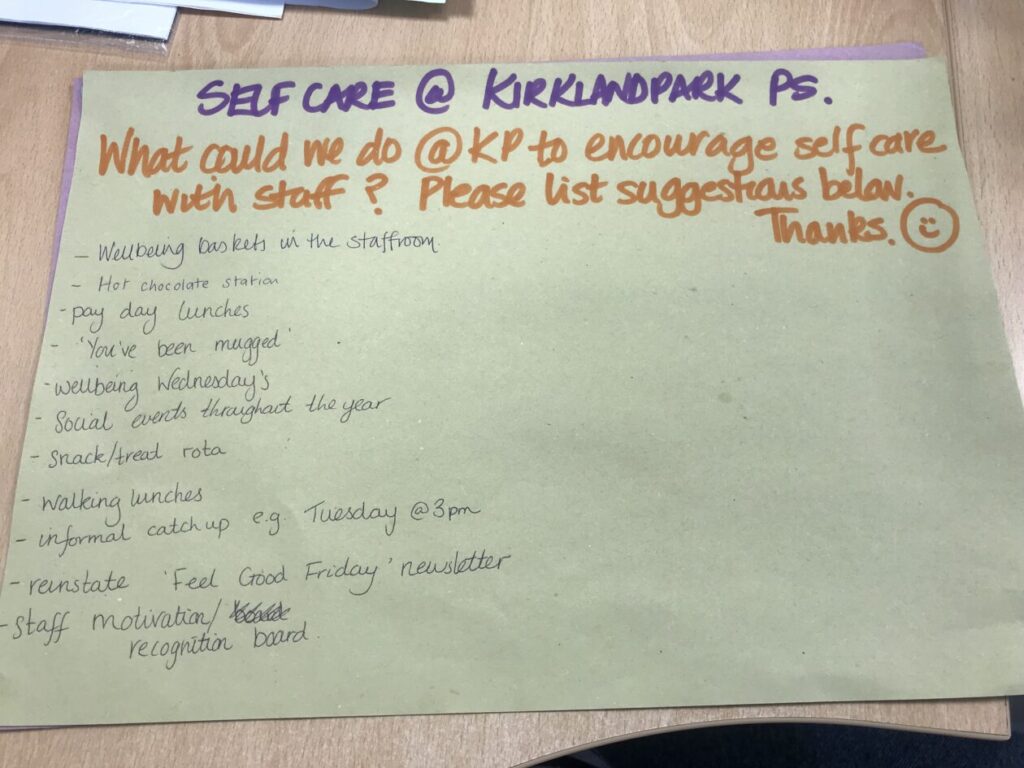 SELF CARE @ KIRKLANDPARK PS.
What could we do @KP to encourage self care
with staff? Please list suggestions below.
Thanks.
- Wellbeing baskets in the staffroom
- Hot chocolate station
- pay day lunches
- 'You've been mugged'
- wellbeing Wednesday's
- Social events throughout the year
- snack/treat rota
- walking lunches
- informal catch up e.g. Tuesday @3pm
- reinstate 'Feel Good Friday' newsletter
- Staff motivation/
recognition board.